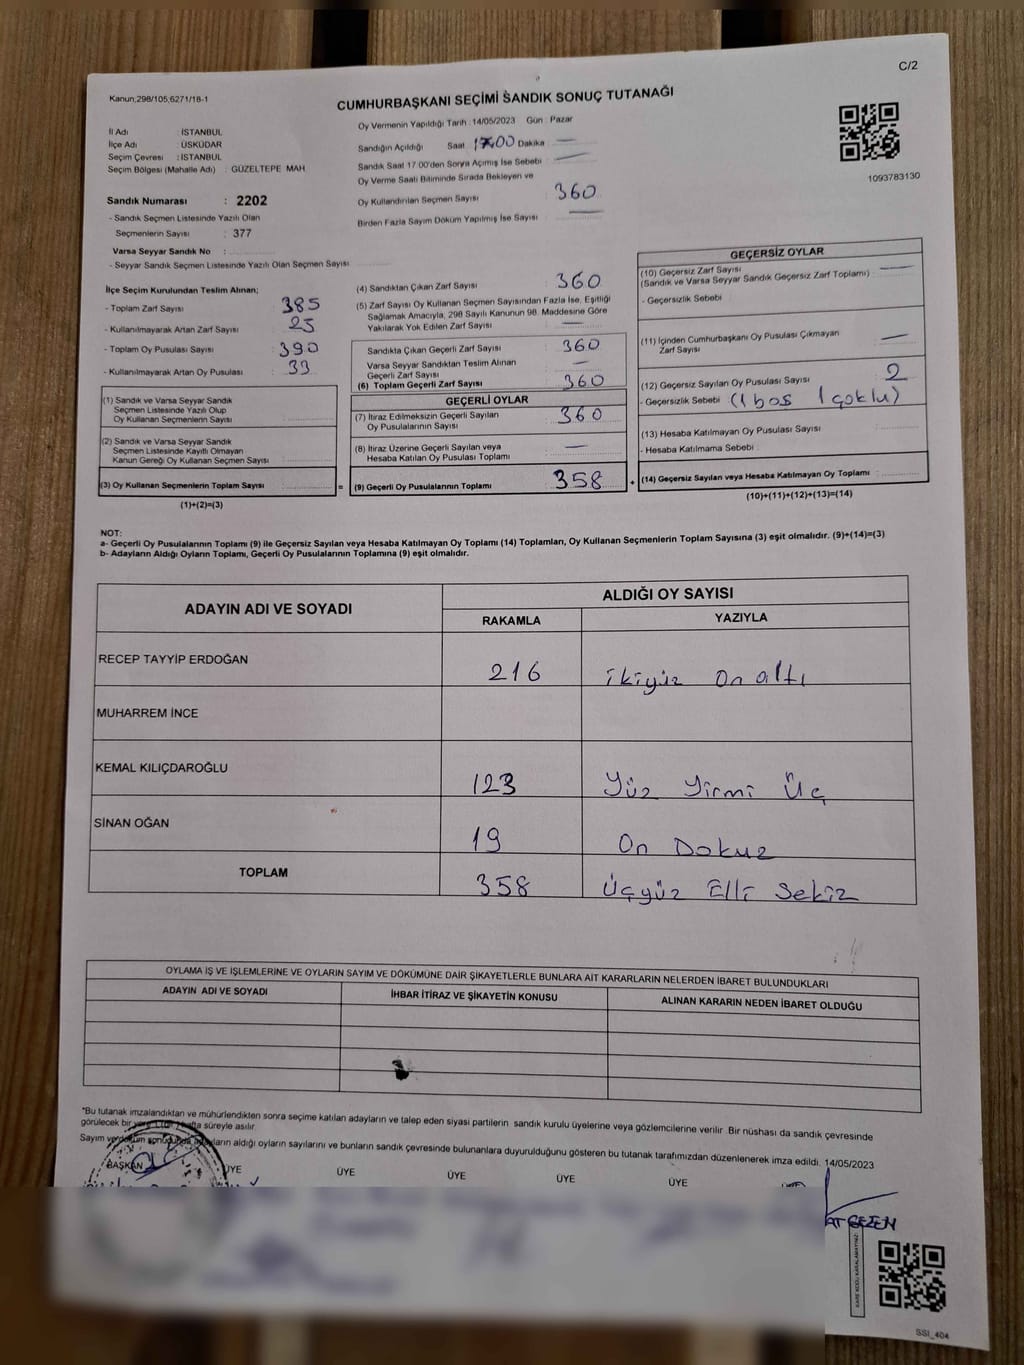 C/2
Kanun;298/105;6271/18-1
CUMHURBAŞKANI SEÇİMİ SANDIK SONUÇ TUTANAĞI
İl Adı : İSTANBUL
İlçe Adı : ÜSKÜDAR
Seçim Çevresi : İSTANBUL
Seçim Bölgesi (Mahalle Adı) : GÜZELTEPE MAH
Sandık Numarası : 2202
- Sandık Seçmen Listesinde Yazılı Olan
Seçmenlerin Sayısı : 377
Varsa Seyyar Sandık No :
- Seyyar Sandık Seçmen Listesinde Yazılı Olan Seçmen Sayısı
Oy Vermenin Yapıldığı Tarih : 14/05/2023 Gün : Pazar
Sandığın Açıldığı Saat 17:00 Dakika : —
Sandık Saat 17:00'den Sonra Açımış İse Sebebi : —
Oy Verme Saati Bitiminde Sırada Bekleyen ve
Oy Kullandırılan Seçmen Sayısı : 360
Birden Fazla Sayım Döküm Yapılmış İse Sayısı : —
1093783130
İlçe Seçim Kurulundan Teslim Alınan;
- Toplam Zarf Sayısı : 385
- Kullanılmayarak Artan Zarf Sayısı : 25
- Toplam Oy Pusulası Sayısı : 390
- Kullanılmayarak Artan Oy Pusulası : 33
(1) Sandık ve Varsa Seyyar Sandık
Seçmen Listesinde Yazılı Olup
Oy Kullanan Seçmenlerin Sayısı :
(2) Sandık ve Varsa Seyyar Sandık
Seçmen Listesinde Kayıtlı Olmayan
Kanun Gereği Oy Kullanan Seçmen Sayısı :
(3) Oy Kullanan Seçmenlerin Toplam Sayısı :
(1)+(2)=(3)
=
(4) Sandıktan Çıkan Zarf Sayısı : 360
(5) Zarf Sayısı Oy Kullanan Seçmen Sayısından Fazla İse, Eşitliği
Sağlamak Amacıyla, 298 Sayılı Kanunun 98. Maddesine Göre
Yakılarak Yok Edilen Zarf Sayısı : —
Sandıkta Çıkan Geçerli Zarf Sayısı : 360
Varsa Seyyar Sandıktan Teslim Alınan
Geçerli Zarf Sayısı : —
(6) Toplam Geçerli Zarf Sayısı : 360
GEÇERLİ OYLAR
(7) İtiraz Edilmeksizin Geçerli Sayılan
Oy Pusulalarının Sayısı : 360
(8) İtiraz Üzerine Geçerli Sayılan veya
Hesaba Katılan Oy Pusulası Toplamı : —
(9) Geçerli Oy Pusulalarının Toplamı : 358
+
GEÇERSİZ OYLAR
(10) Geçersiz Zarf Sayısı : —
(Sandık ve Varsa Seyyar Sandık Geçersiz Zarf Toplamı)
- Geçersizlik Sebebi :
(11) İçinden Cumhurbaşkanı Oy Pusulası Çıkmayan
Zarf Sayısı : —
(12) Geçersiz Sayılan Oy Pusulası Sayısı : 2
- Geçersizlik Sebebi (1 boş 1 çoklu)
(13) Hesaba Katılmayan Oy Pusulası Sayısı :
- Hesaba Katılmama Sebebi :
(14) Geçersiz Sayılan veya Hesaba Katılmayan Oy Toplamı :
(10)+(11)+(12)+(13)=(14)
NOT:
a- Geçerli Oy Pusulalarının Toplamı (9) ile Geçersiz Sayılan veya Hesaba Katılmayan Oy Toplamı (14) Toplamları, Oy Kullanan Seçmenlerin Toplam Sayısına (3) eşit olmalıdır. (9)+(14)=(3)
b- Adayların Aldığı Oyların Toplamı, Geçerli Oy Pusulalarının Toplamına (9) eşit olmalıdır.
ADAYIN ADI VE SOYADI
ALDIĞI OY SAYISI
RAKAMLA YAZIYLA
RECEP TAYYİP ERDOĞAN 216 ikiyüz On altı
MUHARREM İNCE
KEMAL KILIÇDAROĞLU 123 Yüz Yirmi Üç
SİNAN OĞAN 19 On Dokuz
TOPLAM 358 Üçyüz Elli Sekiz
OYLAMA İŞ VE İŞLEMLERİNE VE OYLARIN SAYIM VE DÖKÜMÜNE DAİR ŞİKAYETLERLE BUNLARA AİT KARARLARIN NELERDEN İBARET BULUNDUKLARI
ADAYIN ADI VE SOYADI İHBAR İTİRAZ VE ŞİKAYETİN KONUSU ALINAN KARARIN NEDEN İBARET OLDUĞU
*Bu tutanak imzalandıktan ve mühürlendikten sonra seçime katılan adayların ve talep eden siyasi partilerin sandık kurulu üyelerine veya gözlemcilerine verilir. Bir nüshası da sandık çevresinde
görülecek bir süreyle asılır.
Sayım ve aldığı oyların sayılarını ve bunların sandık çevresinde bulunanlara duyurulduğunu gösteren bu tutanak tarafımızdan düzenlenerek imza edildi. 14/05/2023
BAŞKAN ÜYE ÜYE ÜYE ÜYE ÜYE
GEZEN
SSI_404